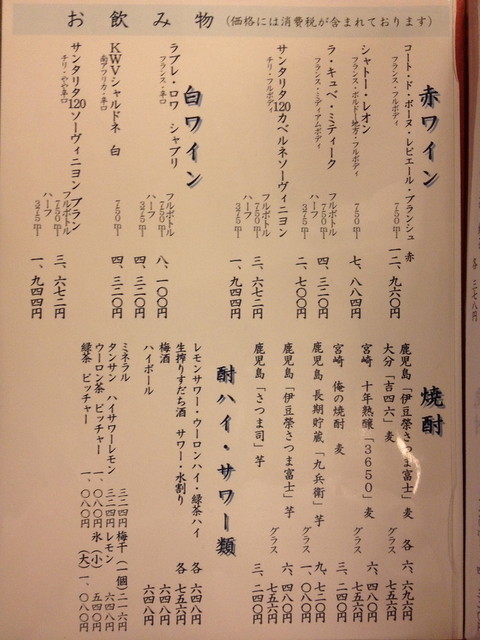 お飲み物（価格には消費税が含まれております）
赤ワイン
コート・ド・ボーヌ・レピエール・ブランシュ 赤
フランス・フルボディ
750ml 一二、九六〇円
シャトー・レオン
フランス・ボルドー地方・フルボディ
750ml 七、八八四円
ラ・キュベ・ミティーク
フランス・ミディアムボディ
フルボトル 750ml 四、三二〇円
ハーフ 375ml 二、七〇〇円
サンタリタ120カベルネソーヴィニヨン
チリ・フルボディ
フルボトル 750ml 三、六七二円
ハーフ 375ml 一、九四四円
白ワイン
ラブレ・ロワ シャブリ
フランス・辛口
フルボトル 750ml 八、一〇〇円
ハーフ 375ml 四、三二〇円
KWVシャルドネ 白
南アフリカ・辛口
750ml 四、三二〇円
サンタリタ120ソーヴィニヨン ブラン
チリ・やや辛口
フルボトル 750ml 三、六七二円
ハーフ 375ml 一、九四四円
焼酎
鹿児島「伊豆榮さつま富士」麦 各 六、六九六円
大分「吉四六」麦 グラス 七五六円
宮崎 十年熟醸「3650」麦 六、四八〇円
グラス 七五六円
宮崎 俺の焼酎 麦 三、二四〇円
鹿児島 長期貯蔵「九兵衛」芋 九、七二〇円
グラス 一、〇八〇円
鹿児島「伊豆榮さつま富士」芋 六、四八〇円
グラス 七五六円
鹿児島「さつま司」芋 三、二四〇円
酎ハイ・サワー類
レモンサワー・ウーロンハイ・緑茶ハイ 各 六四八円
生搾りすだち酒 サワー・水割り 各 七五六円
梅酒 六四八円
ハイボール 六四八円
ミネラル 三二四円 梅干（一個）二一六円
タンサン ハイサワーレモン 三二四円 レモン 六四八円
ウーロン茶 ピッチャー 一、〇八〇円 氷（小）五四〇円
緑茶 ピッチャー 一、〇八〇円 （大）一、〇八〇円